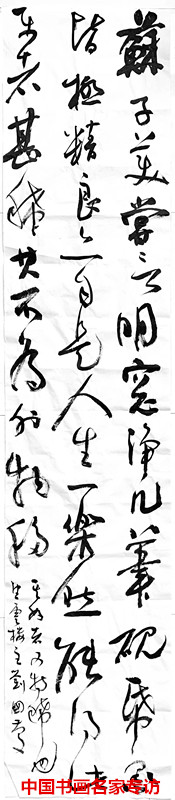 蘇子美嘗言明窗淨几筆硯帋墨
皆極精良亦自是人生一樂然能得此
樂者甚稀其不為外物移
其好者又特稀也
雲樓主劉
中国书画名家专访